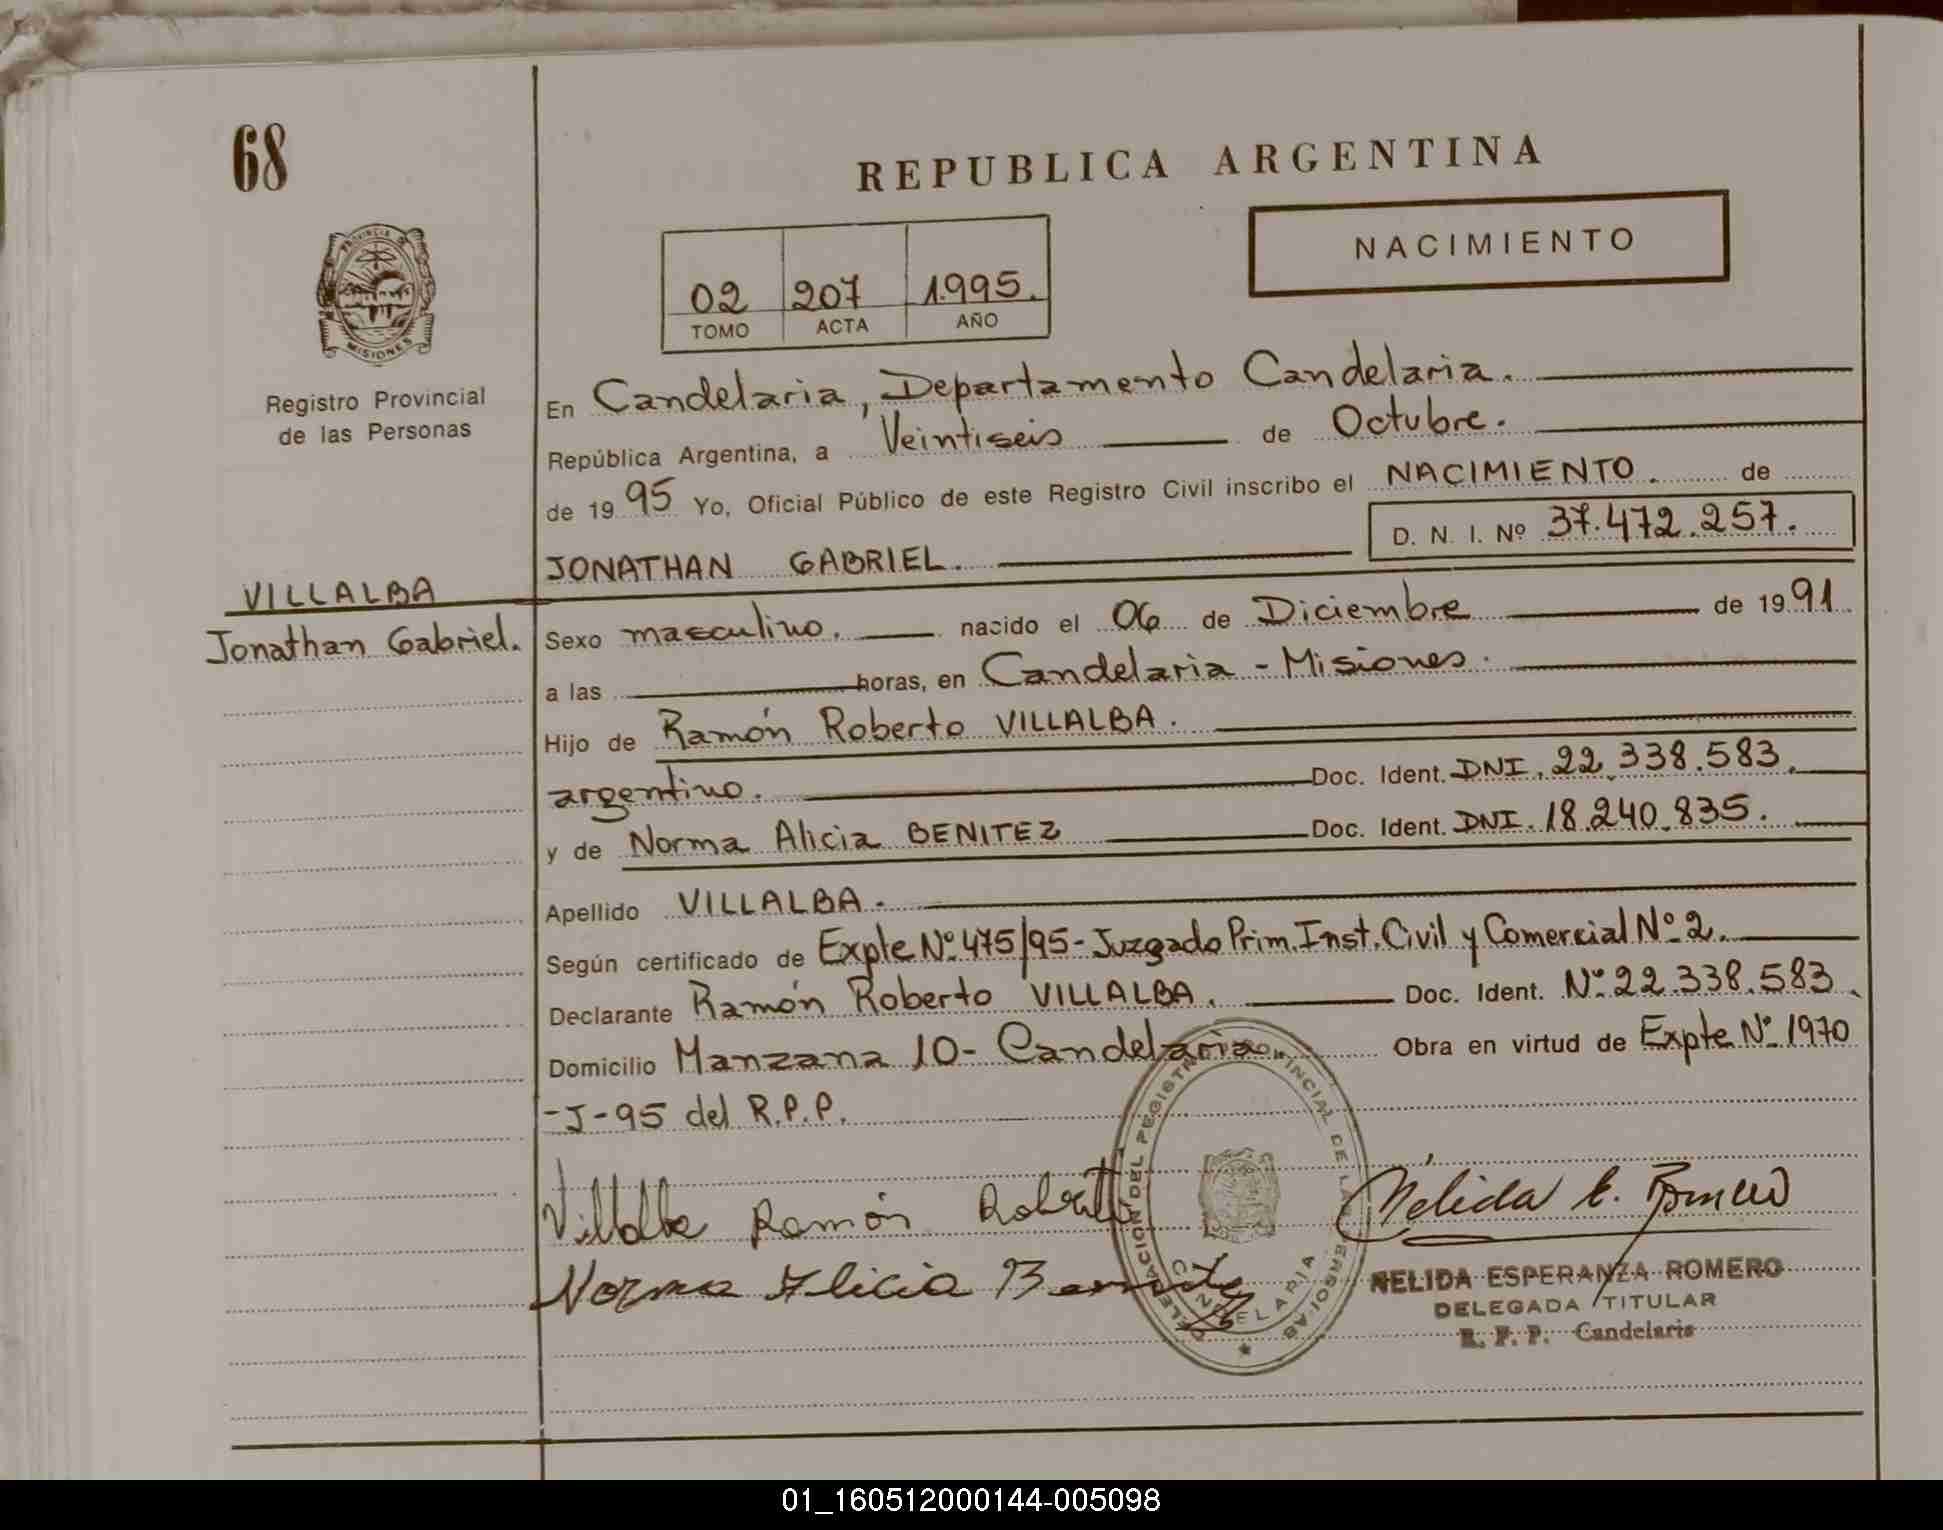 68
REPUBLICA ARGENTINA
NACIMIENTO
02 207 1.995.
TOMO ACTA AÑO
PROVINCIA DE
MISIONES
Registro Provincial
de las Personas
VILLALBA
Jonathan Gabriel.
En Candelaria, Departamento Candelaria.
República Argentina, a Veintiseis de Octubre.
de 19 95 Yo, Oficial Público de este Registro Civil inscribo el NACIMIENTO. de
D. N. I. Nº 37.472.257.
JONATHAN GABRIEL.
Sexo masculino. nacido el 06 de Diciembre de 19 91
a las horas, en Candelaria - Misiones.
Hijo de Ramón Roberto VILLALBA.
argentino. Doc. Ident. DNI. 22.338.583.
y de Norma Alicia BENITEZ Doc. Ident. DNI. 18.240.835.
Apellido VILLALBA.
Según certificado de Expte Nº 475/95 - Juzgado Prim. Inst. Civil y Comercial Nº 2.
Declarante Ramón Roberto VILLALBA. Doc. Ident. Nº 22.338.583.
Domicilio Manzana 10 - Candelaria. Obra en virtud de Expte Nº 1970
-J-95 del R.P.P.
Villalba Ramón Roberto
Norma Alicia Benitez
DELEGACION DEL REGISTRO PROVINCIAL DE LAS PERSONAS
CANDELARIA
Nélida E. Romero
NELIDA ESPERANZA ROMERO
DELEGADA TITULAR
R. P. P. Candelaria
01_160512000144-005098